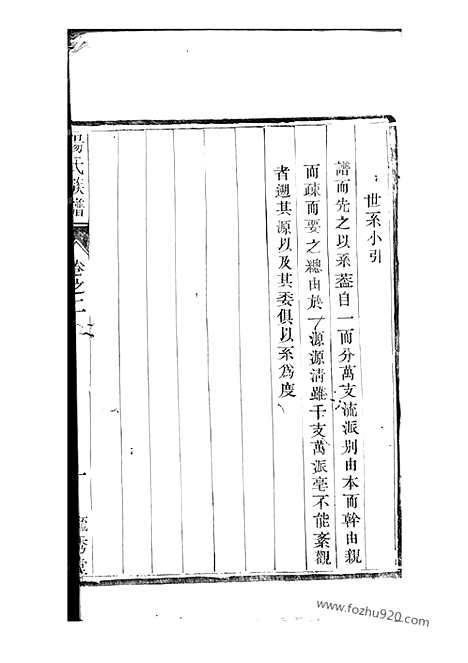 世系小引
譜而先之以系葢自一而分萬支流派别由本而幹由親
而疎而要之總由於一源源清雖千支萬派毫不能紊觀
者遡其源以及其委俱以系爲度
楊氏族譜
卷之二
一
www.fozhu920.com